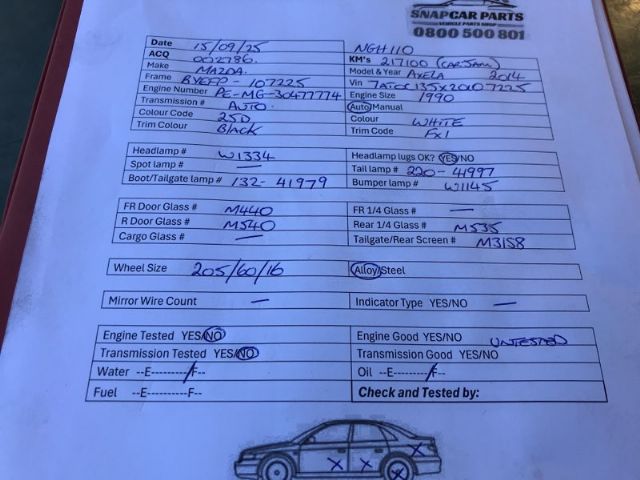 SNAPCAR PARTS
VEHICLE PARTS SHOP
0800 500 801
Date 15/09/25 NGH110
ACQ 002786. KM's 217100 (CARJAM)
Make MAZDA. Model & Year AXELA 2014
Frame BYEFP - 107225 Vin
Engine Number PE-MG-30477774 Engine Size 1990
Transmission # AUTO. Auto/Manual
Colour Code 25D Colour WHITE
Trim Colour Black Trim Code Fx1
Headlamp # W1334 Headlamp lugs OK? YES/NO
Spot lamp # — Tail lamp # 220- 41997
Boot/Tailgate lamp # 132- 41979 Bumper lamp # W1145
FR Door Glass # M440 FR 1/4 Glass # —
R Door Glass # M540 Rear 1/4 Glass # M535
Cargo Glass # — Tailgate/Rear Screen # M3158
Wheel Size 205/60/16 Alloy/Steel
Mirror Wire Count — Indicator Type YES/NO —
Engine Tested YES/NO Engine Good YES/NO UNTESTED
Transmission Tested YES/NO Transmission Good YES/NO
Water --E---------/F-- Oil --E---------F--
Fuel --E---------F-- Check and Tested by:
X X X X